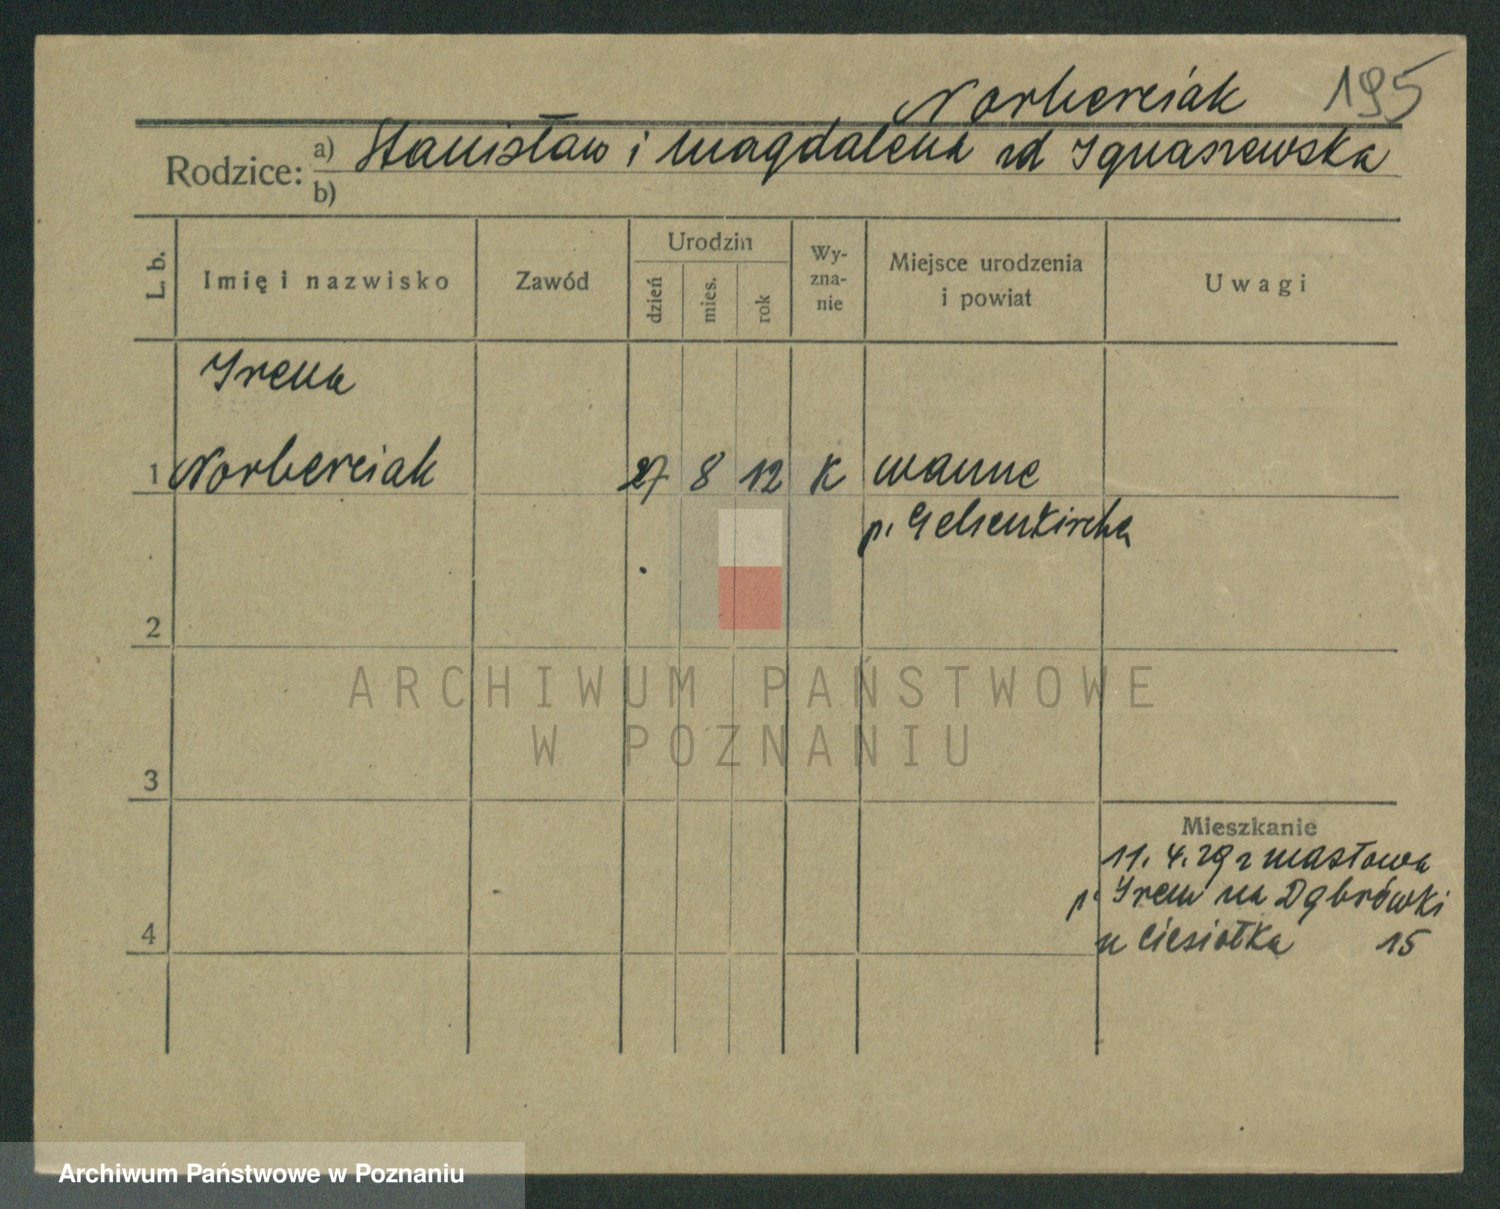 Norberciak 195
Rodzice: a) Stanisław i Magdalena zd Ignaszewska
b)
L. b.
Imię i nazwisko
Zawód
Urodzin
dzień
mies.
rok
Wy-
zna-
nie
Miejsce urodzenia
i powiat
Uwagi
Irena
1 Norberciak 27 8 12 K Wanne
p. Gelsenkirche
2
ARCHIWUM PAŃSTWOWE
W POZNANIU
3
Mieszkanie
11. 4. 29 z Masłowa
p. Śrem na Dąbrówki
u Ciesiołka 15
4
Archiwum Państwowe w Poznaniu